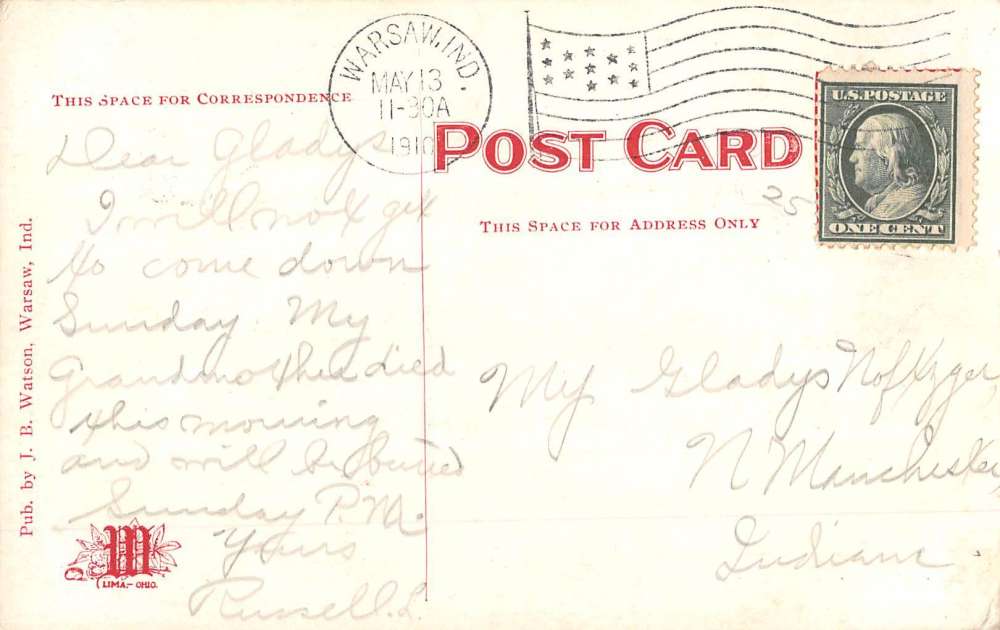 WARSAW, IND.
MAY 13
11-30A
1910
U.S. POSTAGE
ONE CENT
THIS SPACE FOR CORRESPONDENCE
POST CARD
25
THIS SPACE FOR ADDRESS ONLY
Dear Gladys
I will not get
to come down
Sunday My
Grandmother died
this morning
and will be buried
Sunday P.M.
Yours
Russell. L.
My Gladys Noftzger
N Manchester
Indiana
Pub. by J. B. Watson, Warsaw, Ind.
W
LIMA.- OHIO.